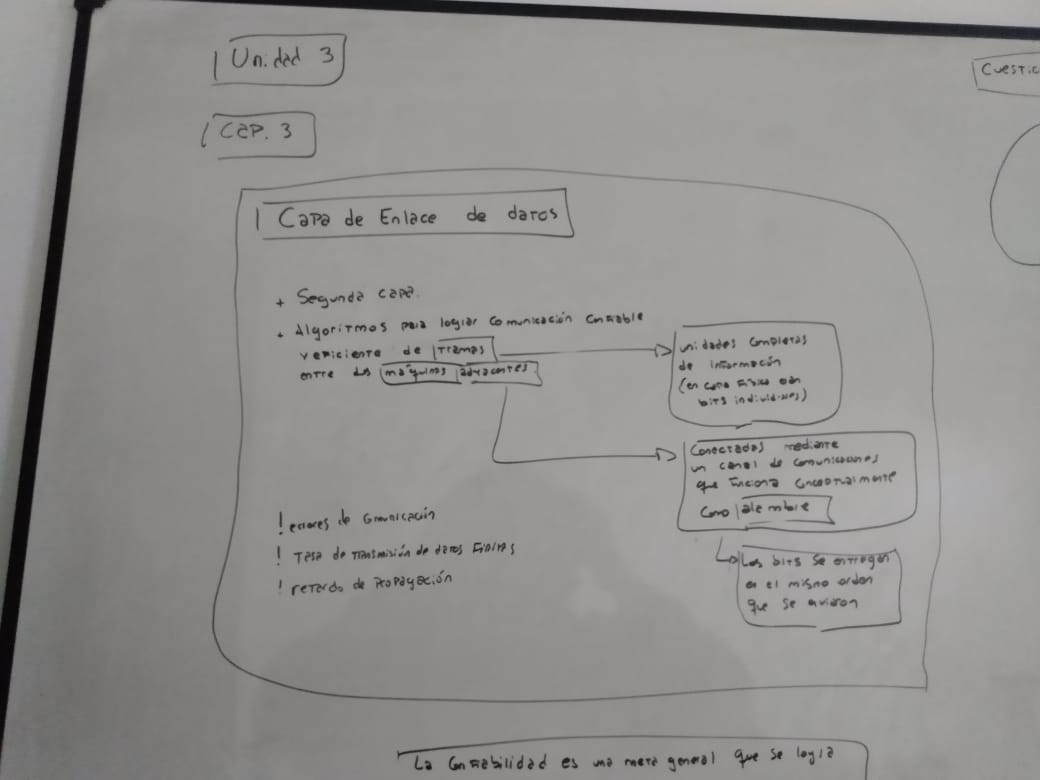 Unidad 3
Cap. 3
CUESTIO
Capa de Enlace de datos
+ Segunda capa.
+ Algoritmos para lograr comunicación confiable
y eficiente de tramas
entre dos máquinas adyacentes
unidades completas
de información
(en capa física son
bits individuales)
Conectadas mediante
un canal de comunicaciones
que funciona conceptualmente
como alambre
Los bits se entregan
en el mismo orden
que se enviaron
! errores de comunicación
! Tasa de transmisión de datos finitas
! retardo de propagación
La confiabilidad es una meta general que se logra